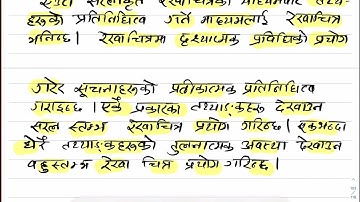 एउटा सरलीकृत रेखाचित्रका माध्यमबाट तथ्य-
हरूको प्रतिनिधित्व गर्ने माध्यमलाई रेखाचित्र
भनिन्छ । रेखाचित्रमा दृश्यात्मक प्रविधिको प्रयोग
गरेर सूचनाहरूको प्रतीकात्मक प्रतिनिधित्व
गराइन्छ । एकै प्रकारका तथ्याङ्कहरू देखाउन
सरल स्तम्भ रेखाचित्र प्रयोग गरिन्छ । एकभन्दा
धेरै तथ्याङ्कहरूको तुलनात्मक अवस्था देखाउन
बहुस्तम्भ रेखा चित्र प्रयोग गरिन्छ ।